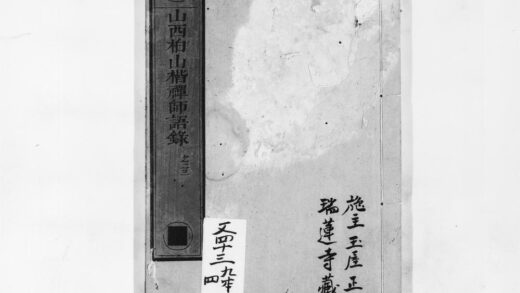 山西柏山楷禪師語錄 之三
施主玉屋正
瑞蓮寺藏
又四十三
九本
四